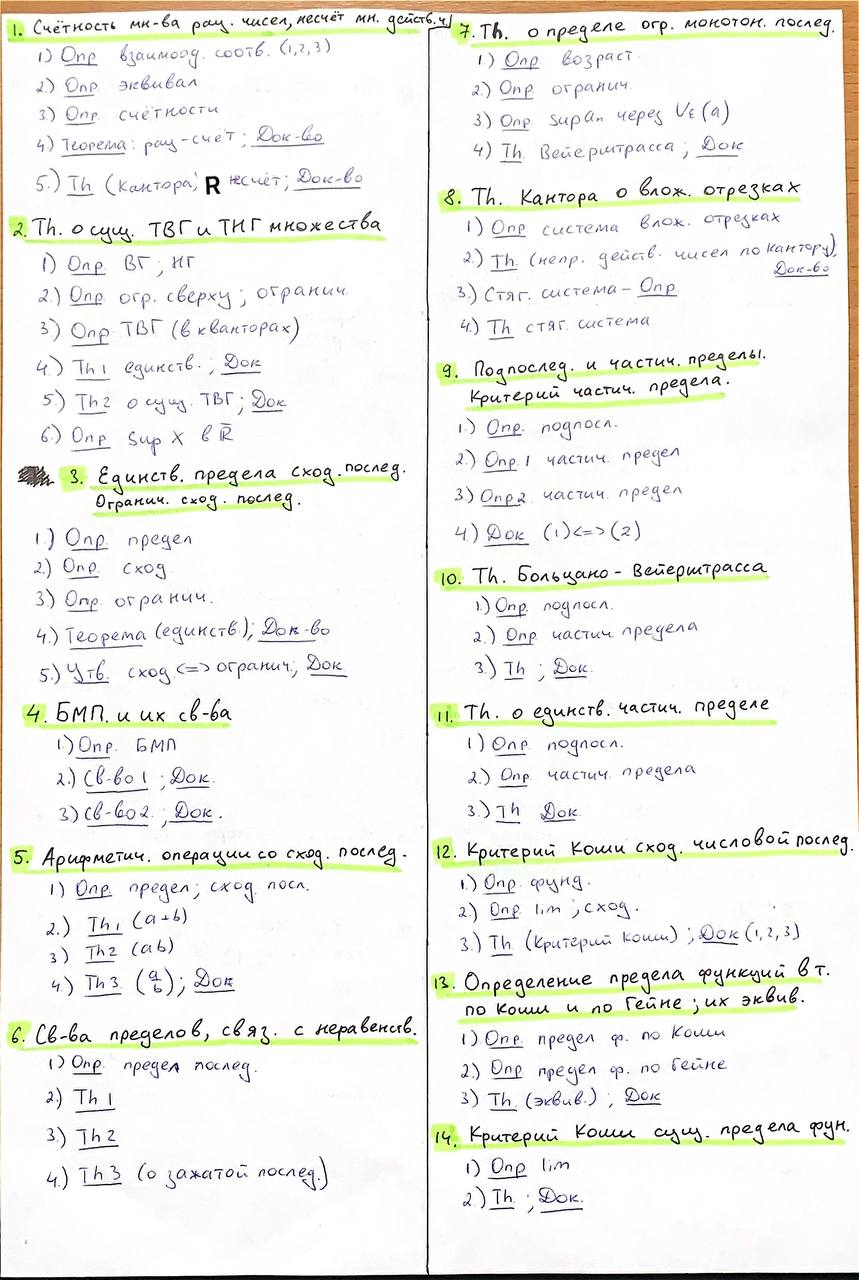 1. Счётность мн-ва рац. чисел, несчёт мн. действ. ч.
1) Опр взаимоод. соотв. (1,2,3)
2.) Опр эквивал
3.) Опр счётности
4) Теорема: рац-счёт; Док-во
5.) Th (Кантора) R несчёт; Док-во
2. Th. о сущ. ТВГ и ТНГ множества
1) Опр ВГ; НГ
2.) Опр огр. сверху; огранич.
3) Опр ТВГ (в кванторах)
4.) Th1 единств.; Док
5.) Th2 о сущ. ТВГ; Док
6.) Опр Sup X в R̅
3. Единств. предела сход. послед.
Огранич. сход. послед.
1.) Опр. предел
2.) Опр. сход.
3) Опр. огранич.
4.) Теорема (единств.); Док-во
5.) Утв. сход. <=> огранич.; Док
4. БМП. и их св-ва
1.) Опр. БМП
2.) Св-во 1; Док.
3) Св-во 2.; Док.
5. Арифметич. операции со сход. послед.
1) Опр. предел; сход. посл.
2.) Th1 (a+b)
3) Th2 (ab)
4.) Th3 (a/b); Док
6. Св-ва пределов, связ. с неравенств.
1) Опр. предел послед.
2) Th 1
3.) Th 2
4.) Th 3 (о зажатой послед.)
7. Th. о пределе огр. монотон. послед.
1) Опр возраст.
2.) Опр огранич.
3) Опр supan через Uε(a)
4) Th. Вейерштрасса; Док
8. Th. Кантора о влож. отрезках
1) Опр система влож. отрезках
2.) Th. (непр. действ. чисел по Кантору)
Док-во
3.) Стяг. система - Опр
4.) Th стяг. система
9. Подпослед. и частич. пределы.
Критерий частич. предела.
1.) Опр. подпосл.
2) Опр 1 частич. предел
3) Опр 2 частич. предел
4) Док (1)<=>(2)
10. Th. Больцано - Вейерштрасса
1.) Опр. подпосл.
2.) Опр частич. предела
3.) Th; Док.
11. Th. о единств. частич. пределе
1) Опр. подпосл.
2.) Опр частич. предела
3.) Th Док.
12. Критерий Коши сход. числовой послед.
1.) Опр. фунд.
2) Опр lim; сход.
3.) Th. (Критерий Коши); Док (1,2,3)
13. Определение предела функций в т.
по Коши и по Гейне; их эквив.
1) Опр. предел ф. по Коши
2) Опр предел ф. по Гейне
3) Th. (эквив.); Док
14. Критерий Коши сущ. предела фун.
1) Опр lim
2.) Th.; Док.